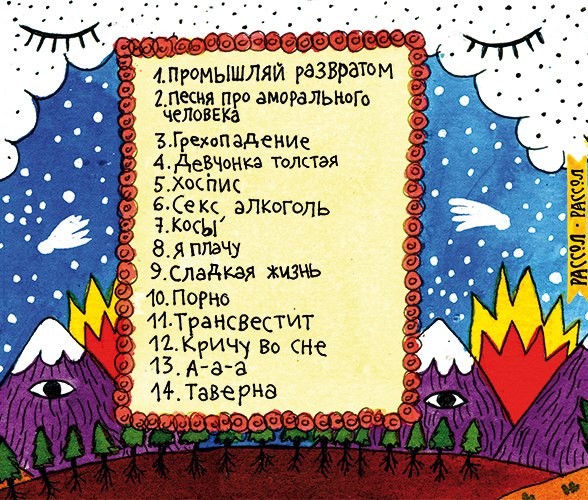 1. ПРОМЫШЛЯЙ РАЗВРАТОМ
2. ПЕСНЯ ПРО АМОРАЛЬНОГО
ЧЕЛОВЕКА
3. ГРЕХОПАДЕНИЕ
4. ДЕВЧОНКА ТОЛСТАЯ
5. ХОСПИС
6. СЕКС, АЛКОГОЛЬ
7. КОСЫ
8. Я ПЛАЧУ
9. СЛАДКАЯ ЖИЗНЬ
10. ПОРНО
11. ТРАНСВЕСТИТ
12. КРИЧУ ВО СНЕ
13. А-а-а
14. ТАВЕРНА
РАССОЛ · РАССОЛ